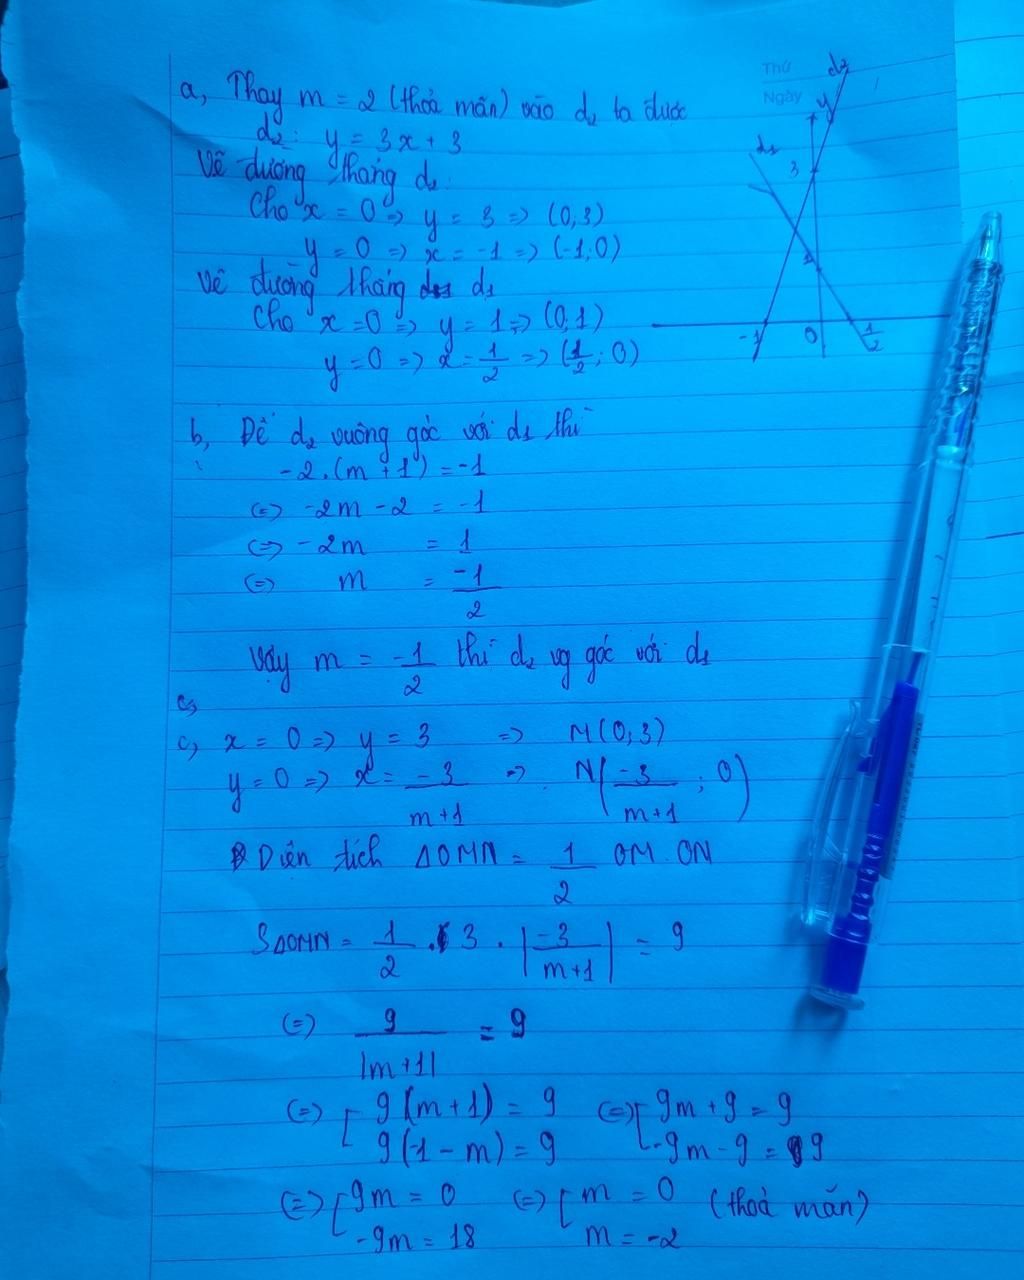 a, Thay m = 2 (thoả mãn) vào d₂ ta được
d₂: y = 3x + 3
Vẽ đường thẳng d₂:
Cho x = 0 => y = 3 => (0;3)
y = 0 => x = -1 => (-1;0)
Vẽ đường thẳng d₁
Cho x = 0 => y = 1 => (0;1)
y = 0 => x = 1/2 => (1/2; 0)
Thứ
Ngày
d₂
y
d₁
3
1
-1
0
1/2
b, Để d₂ vuông góc với d₁ thì
-2.(m + 1) = -1
<=> -2m - 2 = -1
<=> -2m = 1
<=> m = -1/2
Vậy m = -1/2 thì d₂ vg góc với d₁
c,
c, x = 0 => y = 3 => M(0;3)
y = 0 => x = -3/(m+1) => N(-3/(m+1); 0)
Diện tích ΔOMN = 1/2 OM. ON
SΔOMN = 1/2 . 3 . |-3/(m+1)| = 9
<=> 9/|m+1| = 9
<=> [ 9(m+1) = 9 <=> [ 9m + 9 = 9
9(-1 - m) = 9 -9m - 9 = 9
<=> [ 9m = 0 <=> [ m = 0 (thoả mãn)
-9m = 18 m = -2